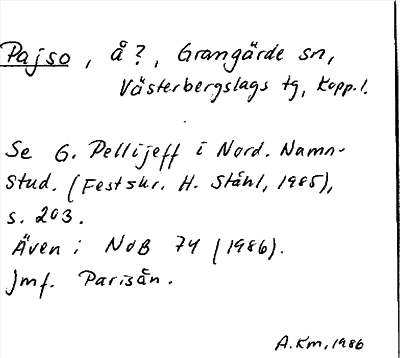 Pajso, å?, Grangärde sn,
Västerbergslags tg, Kopp.l.
Se G. Pellijeff i Nord. Namn-
stud. (Festskr. H. Ståhl, 1985),
s. 203.
Även i NoB 74 (1986).
Jmf. Parisån.
A.Km, 1986